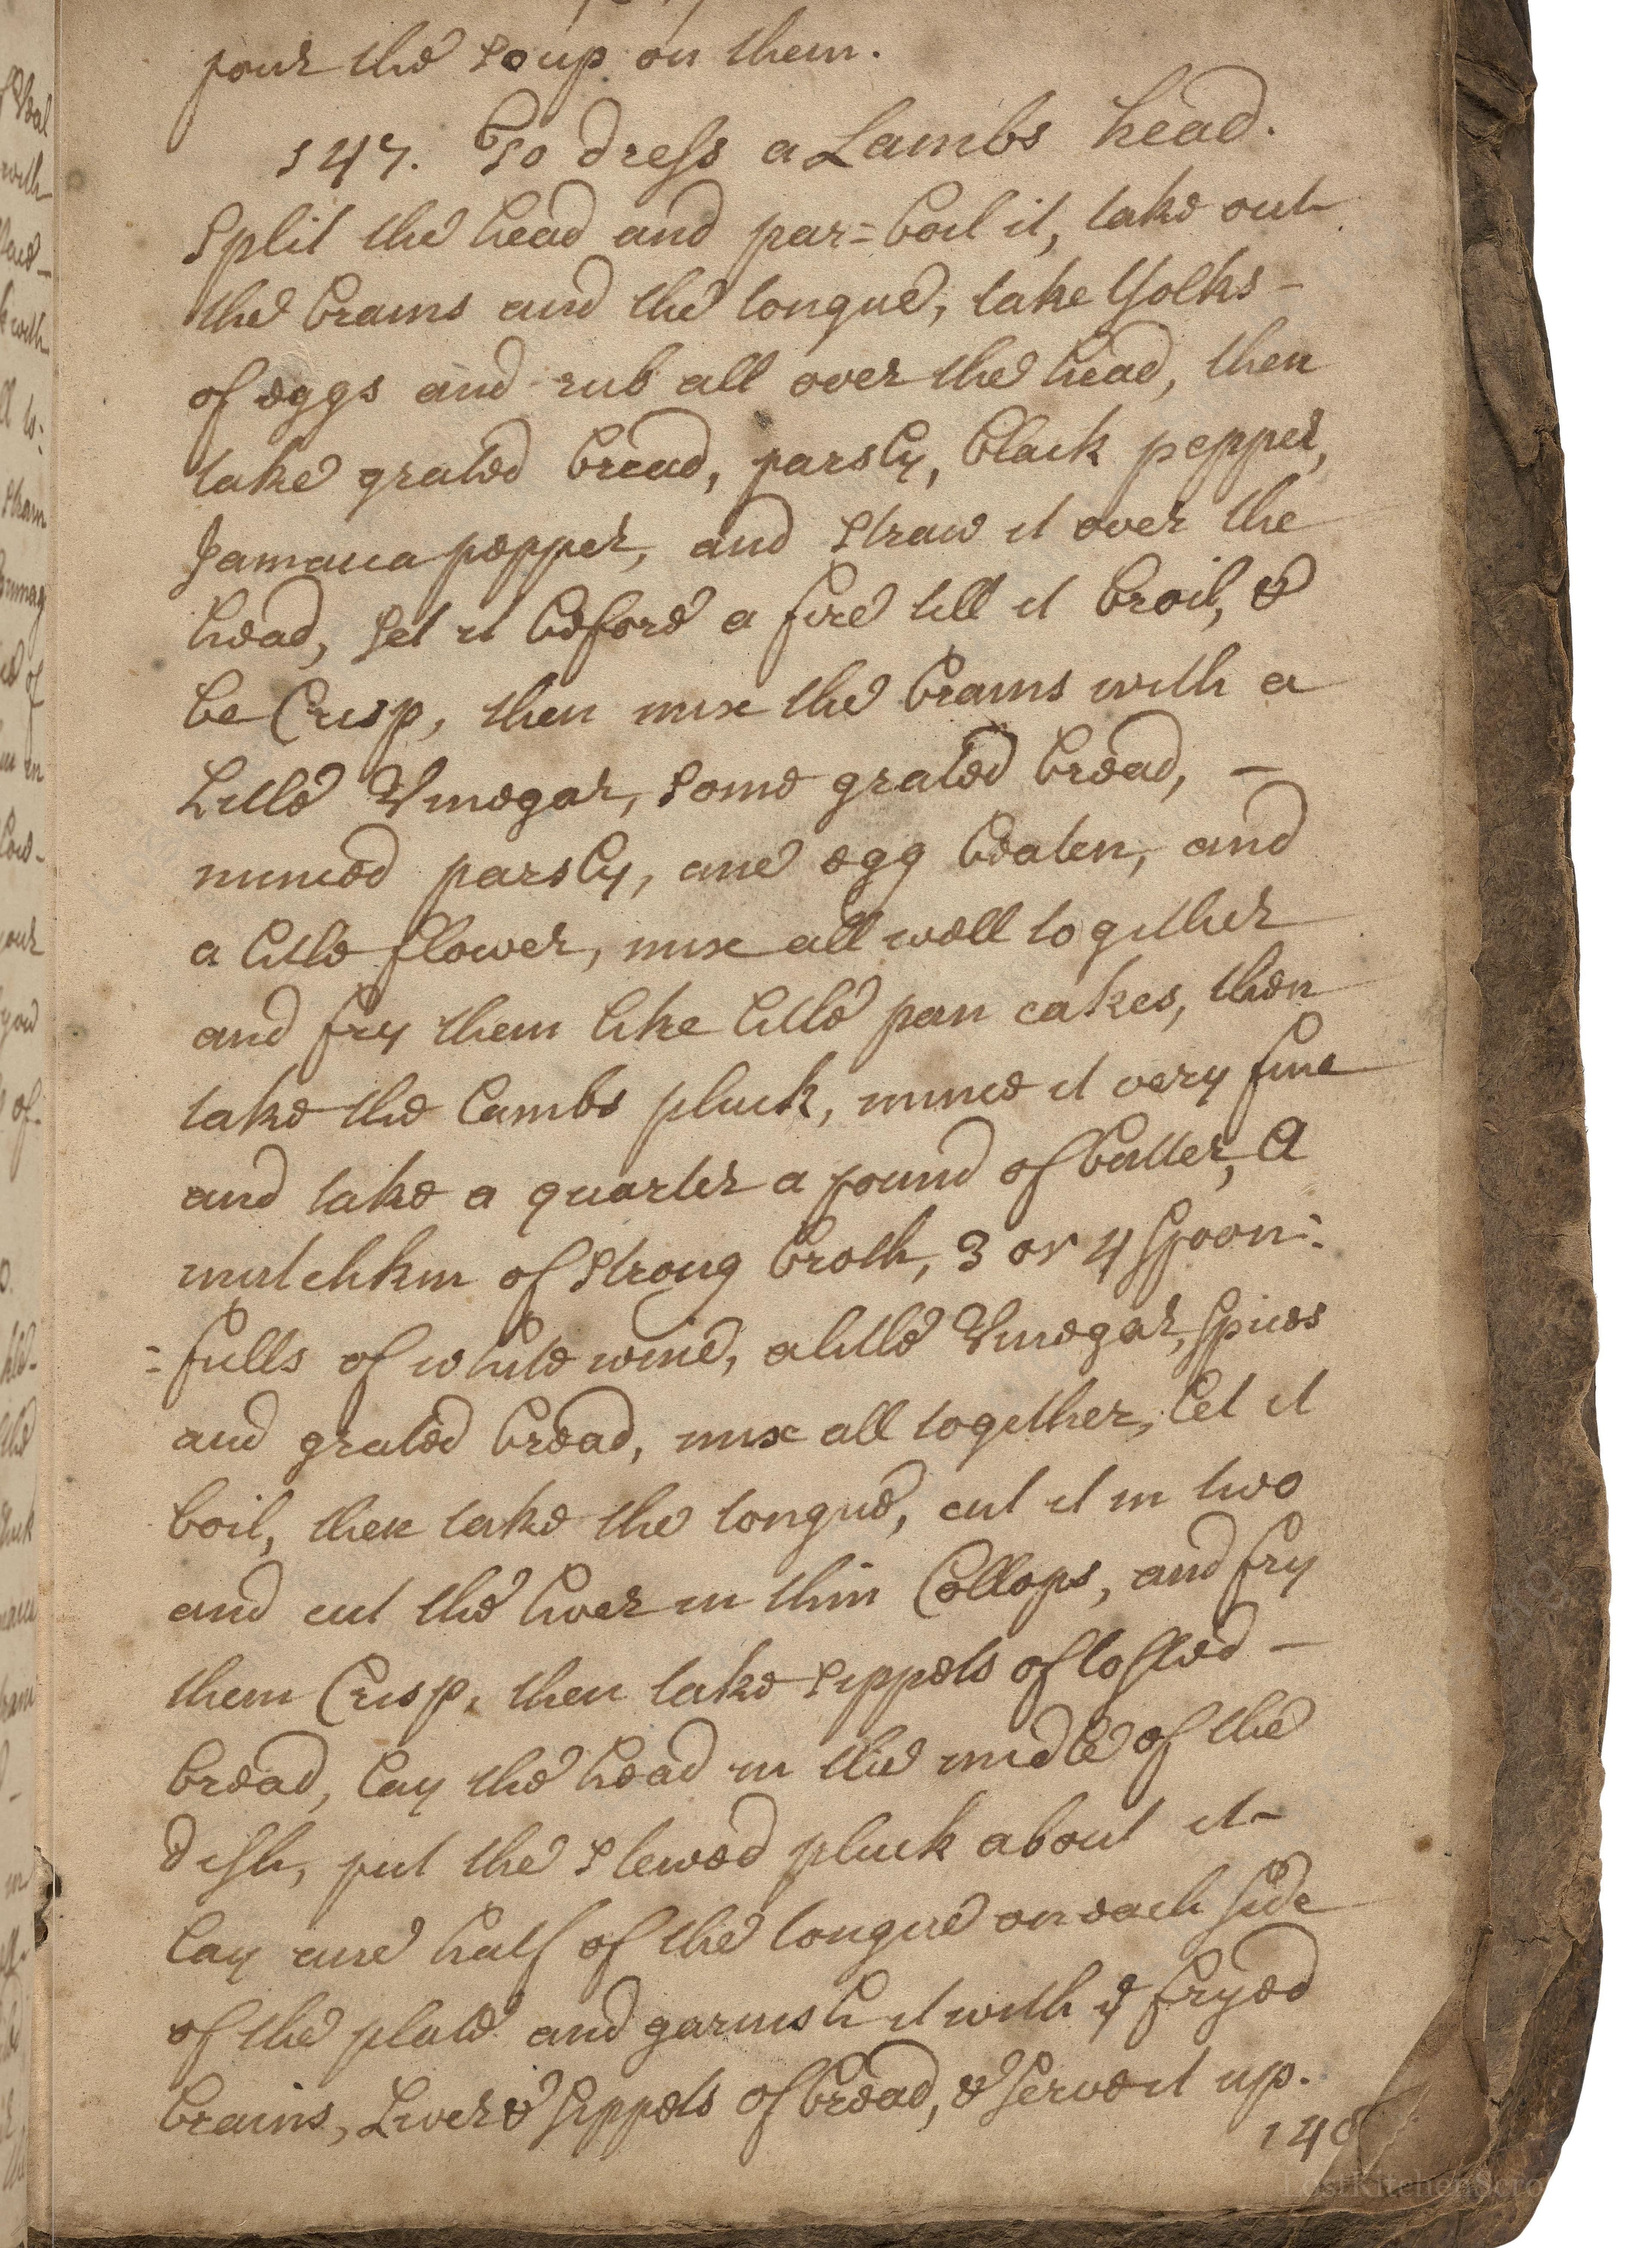 pour the Soup on them.
147. To dress a Lambs head.
Split the head and par=boil it, take out
the brains and the tongue, take Yolks -
of eggs and rub all over the head, then
take grated bread, parsly, black pepper,
Jamaica pepper, and Straw it over the
head, Set it before a fire till it broil, &
be Crisp, then mix the brains with a
Little Vinegar, Some grated bread, -
minced parsly, ane egg beaten, and
a little flower, mix all well together
and fry them like little pan cakes, then
take the lambs pluck, mince it very fine
and take a quarter a pound of butter, A
mutchkin of Strong broth, 3 or 4 Spoon=
=fulls of white wine, a little Vinegar, Spices
and grated bread, mix all together, let it
boil, then take the tongue, cut it in two
and cut the liver in thin Collops, and fry
them Crisp, then take Sippets of tosted -
bread, lay the head in the midle of the
dish, put the Stewed pluck about it -
lay ane half of the tongue on each Side
of the plate and garnish it with ye fryed
brains, Liver & Sippets of bread, & Serve it up.
148
LostKitchenScro